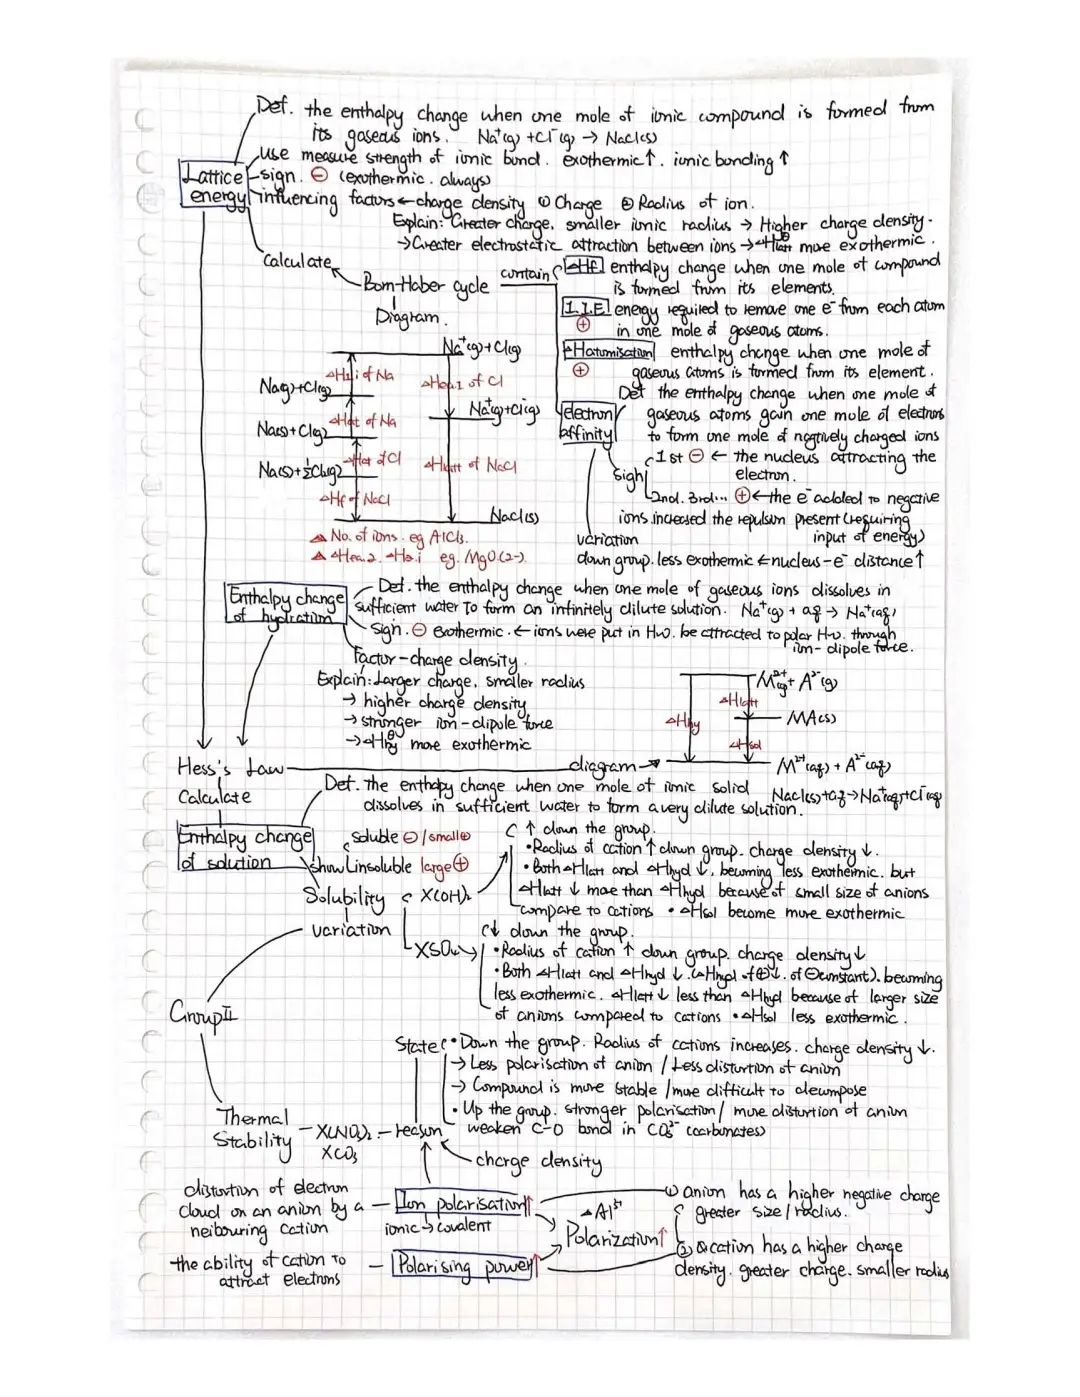 Def. the enthalpy change when one mole of ionic compound is formed from
its gaseous ions. Na⁺(g) + Cl⁻(g) → NaCl(s)
use measure strength of ionic bond. exothermic↑. ionic bonding ↑
Lattice energy
sign. ⊖ (exothermic. always)
influencing factors ← charge density ① Charge ② Radius of ion.
Explain: Greater charge, smaller ionic radius → Higher charge density.
→ Greater electrostatic attraction between ions → ΔHlatt more exothermic.
Calculate
Born-Haber cycle
contain
Diagram.
ΔHf enthalpy change when one mole of compound
is formed from its elements.
1.I.E energy required to remove one e⁻ from each atom
⊕ in one mole of gaseous atoms.
ΔHatomisation enthalpy change when one mole of
⊕ gaseous atoms is formed from its element.
Na⁺(g)+Cl(g)
ΔHi.1 of Na
ΔHea.1 of Cl
Na(g)+Cl(g)
Na⁺(g)+Cl⁻(g)
ΔHat of Na
Na(s)+Cl(g)
ΔHat of Cl
ΔHlatt of NaCl
Na(s)+½Cl₂(g)
ΔHf of NaCl
NaCl(s)
△ No. of ions. eg AlCl₃.
△ ΔHea.2. ΔHa.i eg. MgO.(2-).
electron affinity
Def the enthalpy change when one mole of
gaseous atoms gain one mole of electrons
to form one mole of negtively charged ions
sign
1st ⊖ ← the nucleus attracting the
electron.
2nd. 3rd... ⊕ ← the e⁻ added to negative
ions.increased the repulsion present (requiring
input of energy)
variation
down group. less exothermic ← nucleus-e⁻ distance↑
Enthalpy change of hydration
Def. the enthalpy change when one mole of gaseous ions dissolves in
sufficient water to form an infinitely dilute solution. Na⁺(g) + aq → Na⁺(aq)
sign. ⊖ exothermic. ← ions were put in H₂O. be attracted to polar H₂O. through
ion-dipole force.
Factor - charge density.
Explain: Larger charge, smaller radius
→ higher charge density
→ stronger ion-dipole force
→ ΔHhy more exothermic
M²⁺(g) + A²⁻(g)
ΔHlatt
ΔHhy
MA(s)
ΔHsol
M²⁺(aq) + A²⁻(aq)
Hess's Law
diagram
Calculate
Def. the enthalpy change when one mole of ionic solid NaCl(s)+aq→Na⁺(aq)+Cl⁻(aq)
dissolves in sufficient water to form a very dilute solution.
Enthalpy change of solution
show
soluble ⊖ / small⊕
insoluble large⊕
Solubility
variation
X(OH)₂
↑ down the group.
• Radius of cation ↑ down group. charge density ↓.
• Both ΔHlatt and ΔHhyd ↓. becoming less exothermic. but
ΔHlatt ↓ more than ΔHhyd because of small size of anions
compare to cations • ΔHsol become more exothermic
XSO₄
↓ down the group.
• Radius of cation ↑ down group. charge density↓
• Both ΔHlatt and ΔHhyd ↓. (ΔHhyd of ⊕↓. of ⊖constant). becoming
less exothermic. ΔHlatt ↓ less than ΔHhyd because of larger size
of anions compared to cations • ΔHsol less exothermic.
Group II
State
• Down the group. Radius of cations increases. charge density ↓.
→ Less polarisation of anion / Less distortion of anion
→ Compound is more stable / more difficult to decompose
• Up the group. stronger polarisation / more distortion of anion
weaken C-O bond in CO₃²⁻ (carbonates)
Thermal Stability
X(NO₃)₂
XCO₃
reason
charge density
distortion of electron
cloud on an anion by a
neibouring cation
Ion polarisation↑
ionic → covalent
Al³⁺
Polarization↑
① anion has a higher negative charge
greater size / radius.
② cation has a higher charge
density. greater charge. smaller radius
the ability of cation to
attract electrons
Polarising power↑